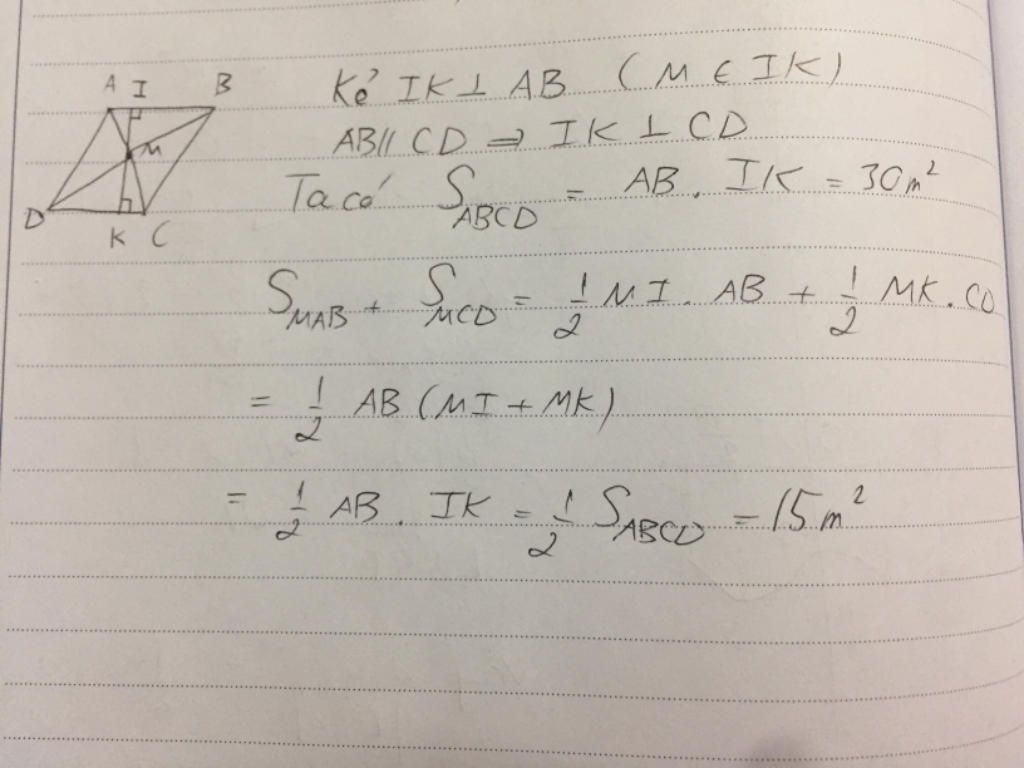 A I B
M
D K C
Kẻ IK ⊥ AB (M ∈ IK)
AB // CD ⇒ IK ⊥ CD
Ta có S_ABCD = AB . IK = 30 m²
S_MAB + S_MCD = 1/2 MI . AB + 1/2 MK . CD
= 1/2 AB (MI + MK)
= 1/2 AB . IK = 1/2 S_ABCD = 15 m²